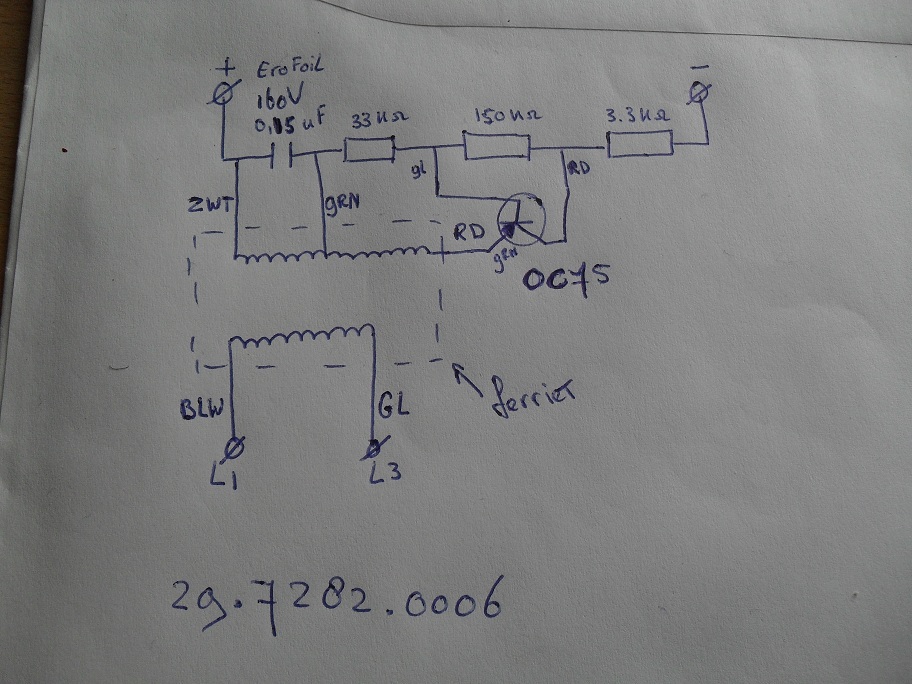 + EroFoil -
160V
0,15 uF 33KΩ 150KΩ 3.3KΩ
gL RD
ZWT gRN
RD
gRN
OC75
ferriet
BLW GL
L1 L3
29.7282.0006